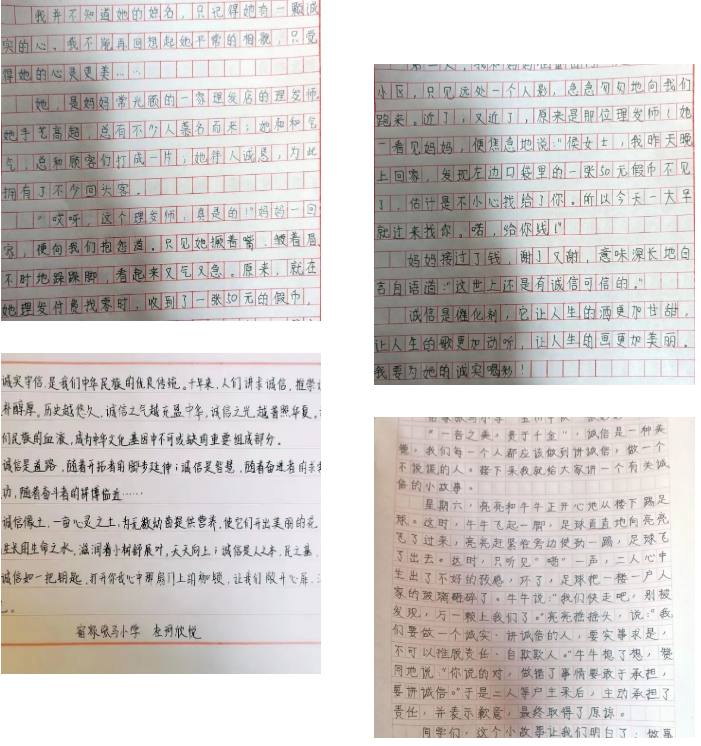 我并不知道她的姓名，只记得她有一颗诚
实的心。我不能再回想起她平常的相貌，只觉
得她的心灵更美……
她，是妈妈常光顾的一家理发店的理发师。
她手艺高超，总有不少人慕名而来；她和和气
气，总和顾客们打成一片；她待人诚恳，为此
拥有了不少回头客。
“哎呀，这个理发师，真是的！”妈妈一回
家，便向我们抱怨道。只见她撅着嘴、皱着眉，
不时地跺跺脚，看起来又气又急。原来，就在
她理发付费找零时，收到了一张50元的假币。
小区，只见远处一个人影，急急匆匆地向我们
跑来。近了，又近了，原来是那位理发师！她
一看见妈妈，便焦急地说：“侯女士，我昨天晚
上回家，发现左边口袋里的一张50元假币不见
了，估计是不小心找给了你。所以今天一大早
就过来找你。喏，给你钱！”
妈妈接过了钱，谢了又谢，意味深长地自
言自语道：“这世上还是有诚信可信的。”
诚信是催化剂，它让人生的酒更加甘甜，
让人生的歌更加动听，让人生的画更加美丽。
我要为她的诚实喝彩！
诚实守信，是我们中华民族的优良传统。千年来，人们讲求诚信，推崇
朴醇厚。历史越悠久，诚信之气越充盈中华，诚信之光越普照华夏。
们民族的血液，成为中华文化基因中不可或缺的重要组成部分。
诚信是道路，随着开拓者的脚步延伸；诚信是智慧，随着奋进者的求
功，随着奋斗者的拼搏临近……
诚信像土，一亩心灵之土，为无数幼苗提供营养，使它们开出美丽的花
生长的生命之水，滋润着小树师展叶，天天向上；诚信是人之本，瓦之基
诚信如一把钥匙，打开你我心中那扇门上的枷锁，让我们敞开心扉，
宿豫张马小学
“一言之美，贵于千金”，诚信是一种美
德，我们每一个人都应该做到讲诚信，做一个
不说谎的人。接下来我就给大家讲一个有关诚
信的小故事。
星期六，亮亮和牛牛正开心地从楼下踢足
球。这时，牛牛飞起一脚，足球直直地向亮亮
飞了过来，亮亮赶紧往旁边使劲一踢，足球飞
了出去。这时，只听见“啪”一声，二人心中
生出了不好的预感，坏了，足球把一楼一户人
家的玻璃砸碎了。牛牛说：“我们快走吧，别被
发现，万一赖上我们了。”亮亮摇摇头，说：“我
们要做一个诚实、讲诚信的人，要实事求是，
不可以推脱责任、自欺欺人。”牛牛想了想，赞
同地说：“你说的对，做错了事情要敢于承担，
要讲诚信。”于是二人等户主来后，主动承担了
责任，并表示歉意，最终取得了原谅。
同学们，这个小故事让我们明白了：做事